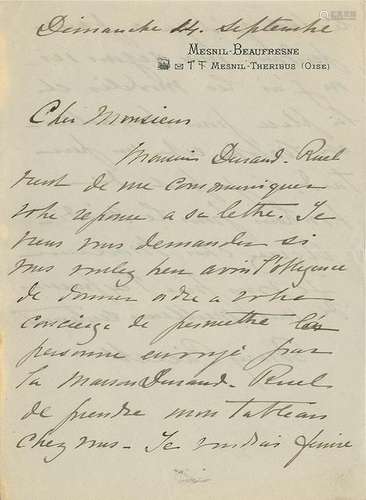 Dimanche 24 Septembre
MESNIL-BEAUFRESNE
MESNIL-THERIBUS (OISE)
Cher Monsieur
Monsieur Durand-Ruel
vient de me communiquer
votre reponse a sa lettre. Je
viens vous demander si
vous voulez bien avoir l'obligeance
de donner ordre a votre
concierge de permettre
personne envoyé par
la Maison Durand-Ruel
de prendre mon tableau
chez vous - Je voudrais